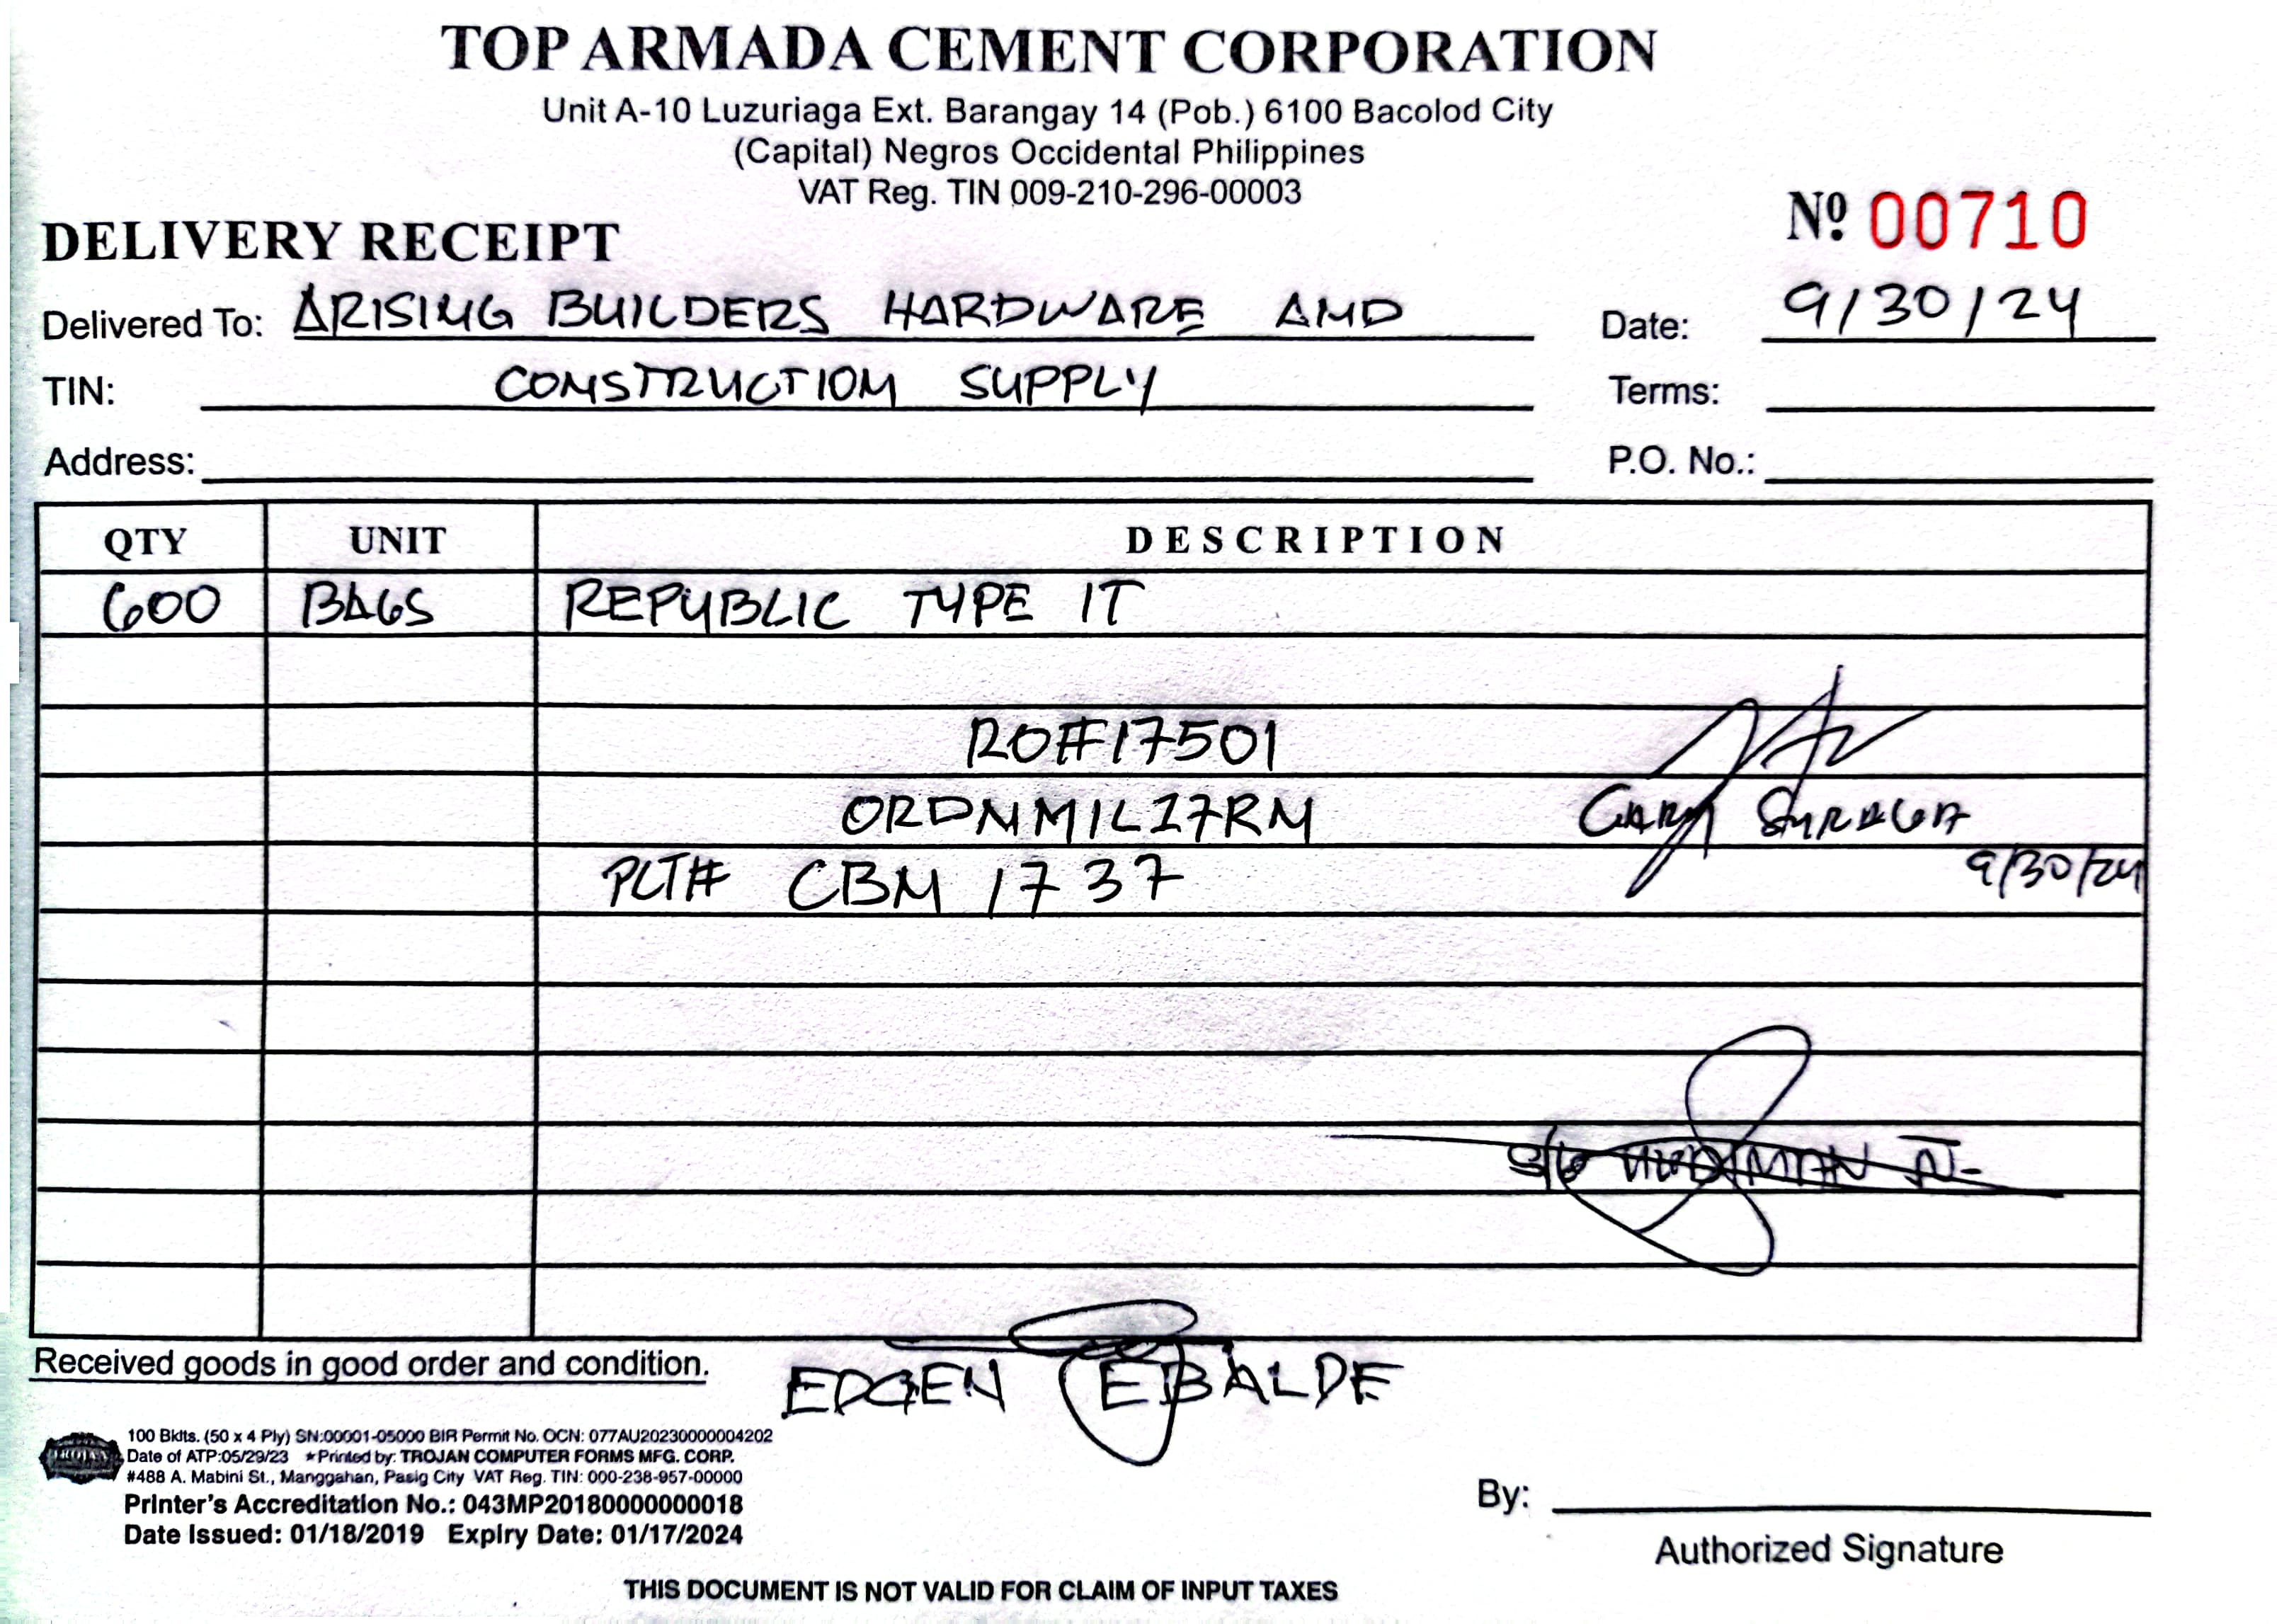 TOP ARMADA CEMENT CORPORATION
Unit A-10 Luzuriaga Ext. Barangay 14 (Pob.) 6100 Bacolod City
(Capital) Negros Occidental Philippines
VAT Reg. TIN 009-210-296-00003
DELIVERY RECEIPT
Nº 00710
Delivered To: ARISING BUILDERS HARDWARE AND
Date: 9/30/24
TIN: CONSTRUCTION SUPPLY
Terms:
Address:
P.O. No.:
QTY UNIT DESCRIPTION
600 BAGS REPUBLIC TYPE IT
RO#17501
ORDNMMIL17RM
GARY
PLT# CBM 1737
9/30/24
Received goods in good order and condition.
EDGEN EBALDE
100 Bklts. (50 x 4 Ply) SN:00001-05000 BIR Permit No. OCN: 077AU20230000004202
Date of ATP:05/29/23 ★Printed by: TROJAN COMPUTER FORMS MFG. CORP.
#488 A. Mabini St., Manggahan, Pasig City VAT Reg. TIN: 000-238-957-00000
Printer's Accreditation No.: 043MP20180000000018
Date Issued: 01/18/2019 Expiry Date: 01/17/2024
By:
Authorized Signature
THIS DOCUMENT IS NOT VALID FOR CLAIM OF INPUT TAXES